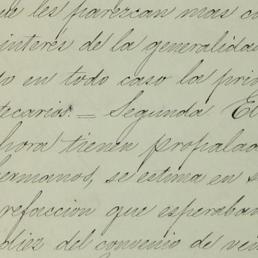 ue les parezcan mas co
interes de la generalidad
o en todo caso la pri
tecarios. = Segunda El
hora tienen propalado
hermanos, se estima en s
refaccion que esperaban
diez del convenio de vein